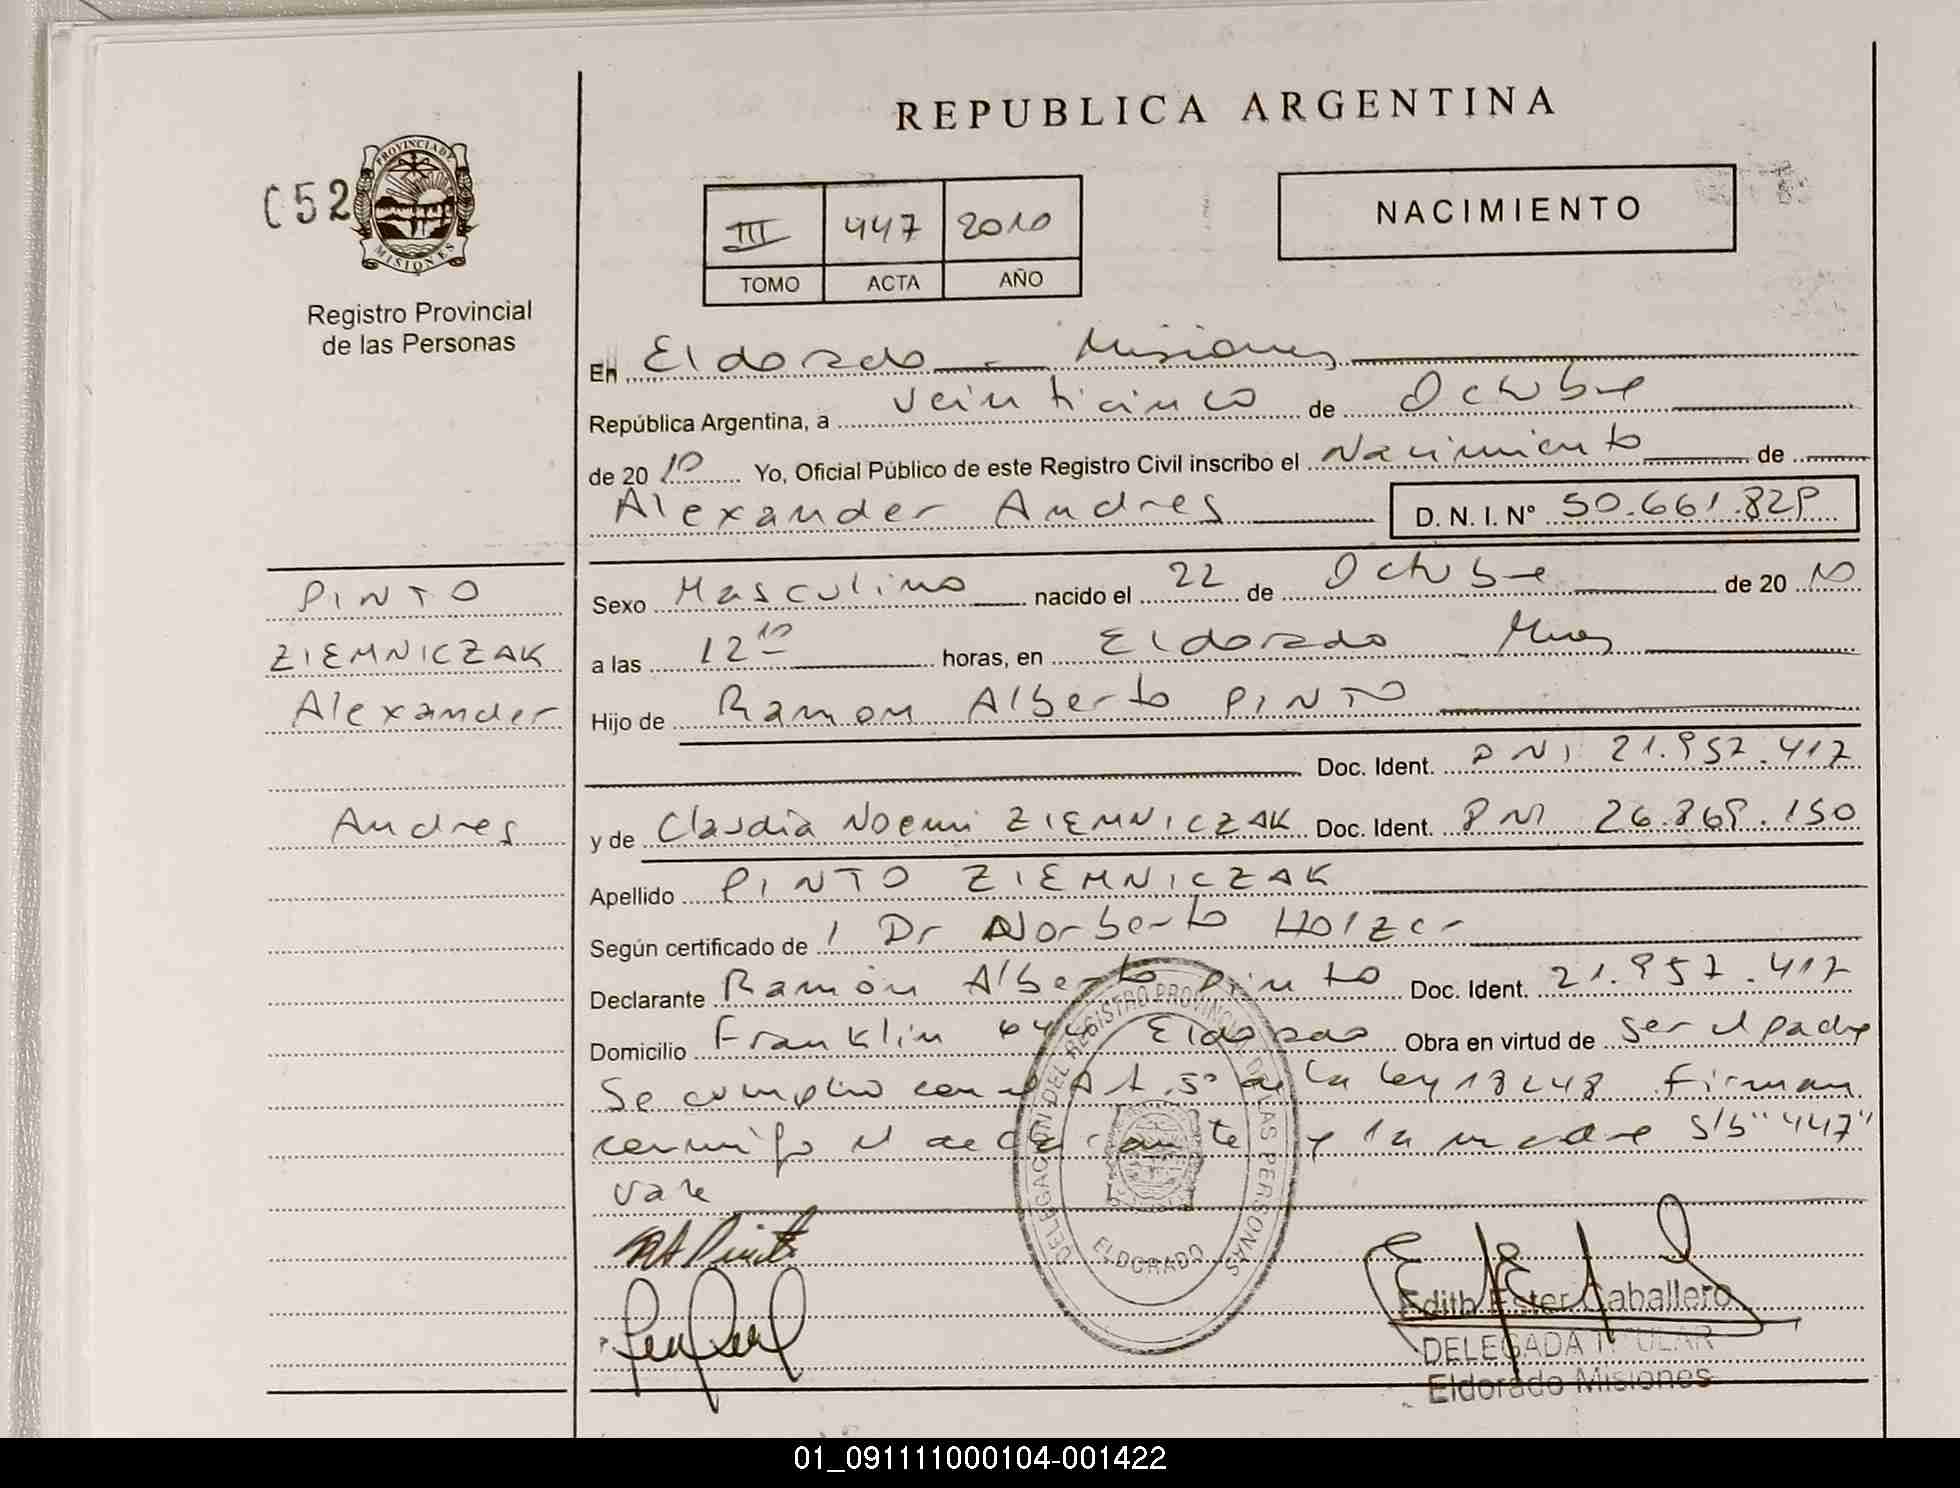 REPUBLICA ARGENTINA
C52
PROVINCIA DE
MISIONES
Registro Provincial
de las Personas
III 447 2010
TOMO ACTA AÑO
NACIMIENTO
En Eldorado - Misiones
República Argentina, a veinticinco de Octubre
de 2010 Yo, Oficial Público de este Registro Civil inscribo el Nacimiento de
Alexander Andres D. N. I. Nº 50.661.829
PINTO
ZIEMNICZAK
Alexander
Andres
Sexo Masculino nacido el 22 de Octubre de 2010
a las 12 10 horas, en Eldorado Mnes
Hijo de Ramon Alberto PINTO
Doc. Ident. DNI 21.957.417
y de Claudia Noemi ZIEMNICZAK Doc. Ident. DNI 26.869.150
Apellido PINTO ZIEMNICZAK
Según certificado de / Dr Norberto Holzer
Declarante Ramón Alberto Pinto Doc. Ident. 21.957.417
Domicilio Franklin Eldorado Obra en virtud de ser el padre
Se cumplio con el Art. 5º de la ley 18248 firman
conmigo el declarante y la madre S/b "447"
vale
DELEGACION DEL REGISTRO PROVINCIAL DE LAS PERSONAS
ELDORADO
RA Pinto
Edith Ester Caballero
DELEGADA TITULAR
Eldorado Misiones
01_091111000104-001422